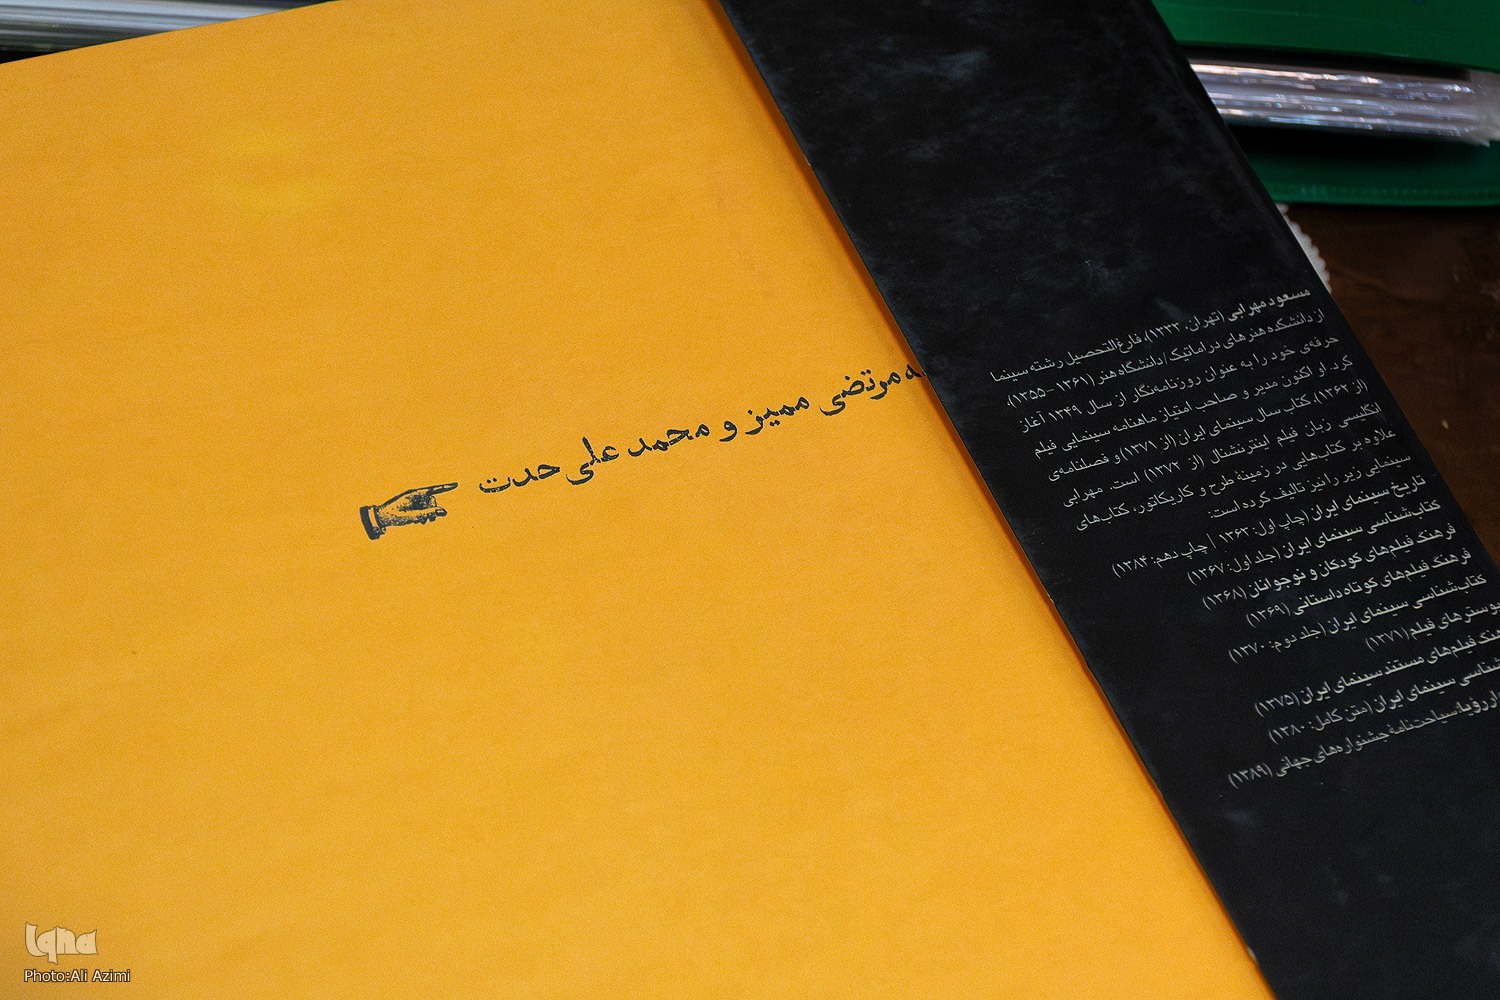 به مرتضی ممیز و محمد علی حدت
مسعود مهرابی (تهران، ۱۳۳۳)، فارغ‌التحصیل رشته سینما
از دانشکده هنرهای دراماتیک / دانشگاه هنر (۱۳۶۱ – ۱۳۵۵)،
حرفه‌ی خود را به عنوان روزنامه‌نگار از سال ۱۳۴۹ آغاز
کرد. او اکنون مدیر و صاحب امتیاز ماهنامه سینمایی فیلم
(از ۱۳۶۲)، کتاب سال سینمای ایران (از ۱۳۷۱) و فصلنامه‌ی
انگلیسی زبان فیلم اینترنشنال (از ۱۳۷۲) است. مهرابی
علاوه بر کتاب‌هایی در زمینه طرح و کاریکاتور، کتاب‌های
سینمایی زیر را نیز تالیف کرده است:
تاریخ سینمای ایران (چاپ اول: ۱۳۶۳ | چاپ دهم: ۱۳۸۴)
کتاب‌شناسی سینمای ایران (جلد اول: ۱۳۶۷)
فرهنگ فیلم‌های کودکان و نوجوانان (۱۳۶۸)
فرهنگ فیلم‌های کوتاه داستانی (۱۳۶۹)
کتاب‌شناسی سینمای ایران (جلد دوم: ۱۳۷۰)
پوسترهای فیلم (۱۳۷۱)
فیلم‌های مستند سینمای ایران (۱۳۷۵)
سینمای ایران (متن کامل: ۱۳۸۰)
رؤیا: سیاحت‌نامهٔ جشنواره‌های جهانی (۱۳۸۹)
Iqna
Photo:Ali Azimi